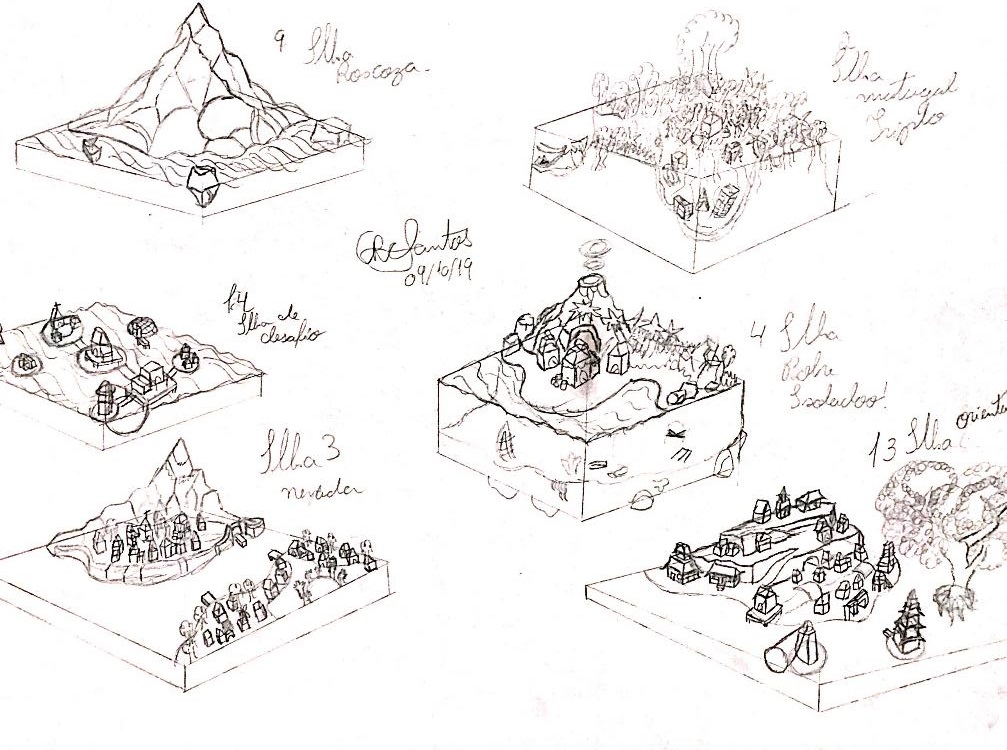 9 Ilha
Roscoza
Ilha
matugal
Tripto
Santos
09/10/19
14
Ilha de
desafio
4 Ilha
Pobre
Isolado!
Ilha 3
nevada
13 Ilha